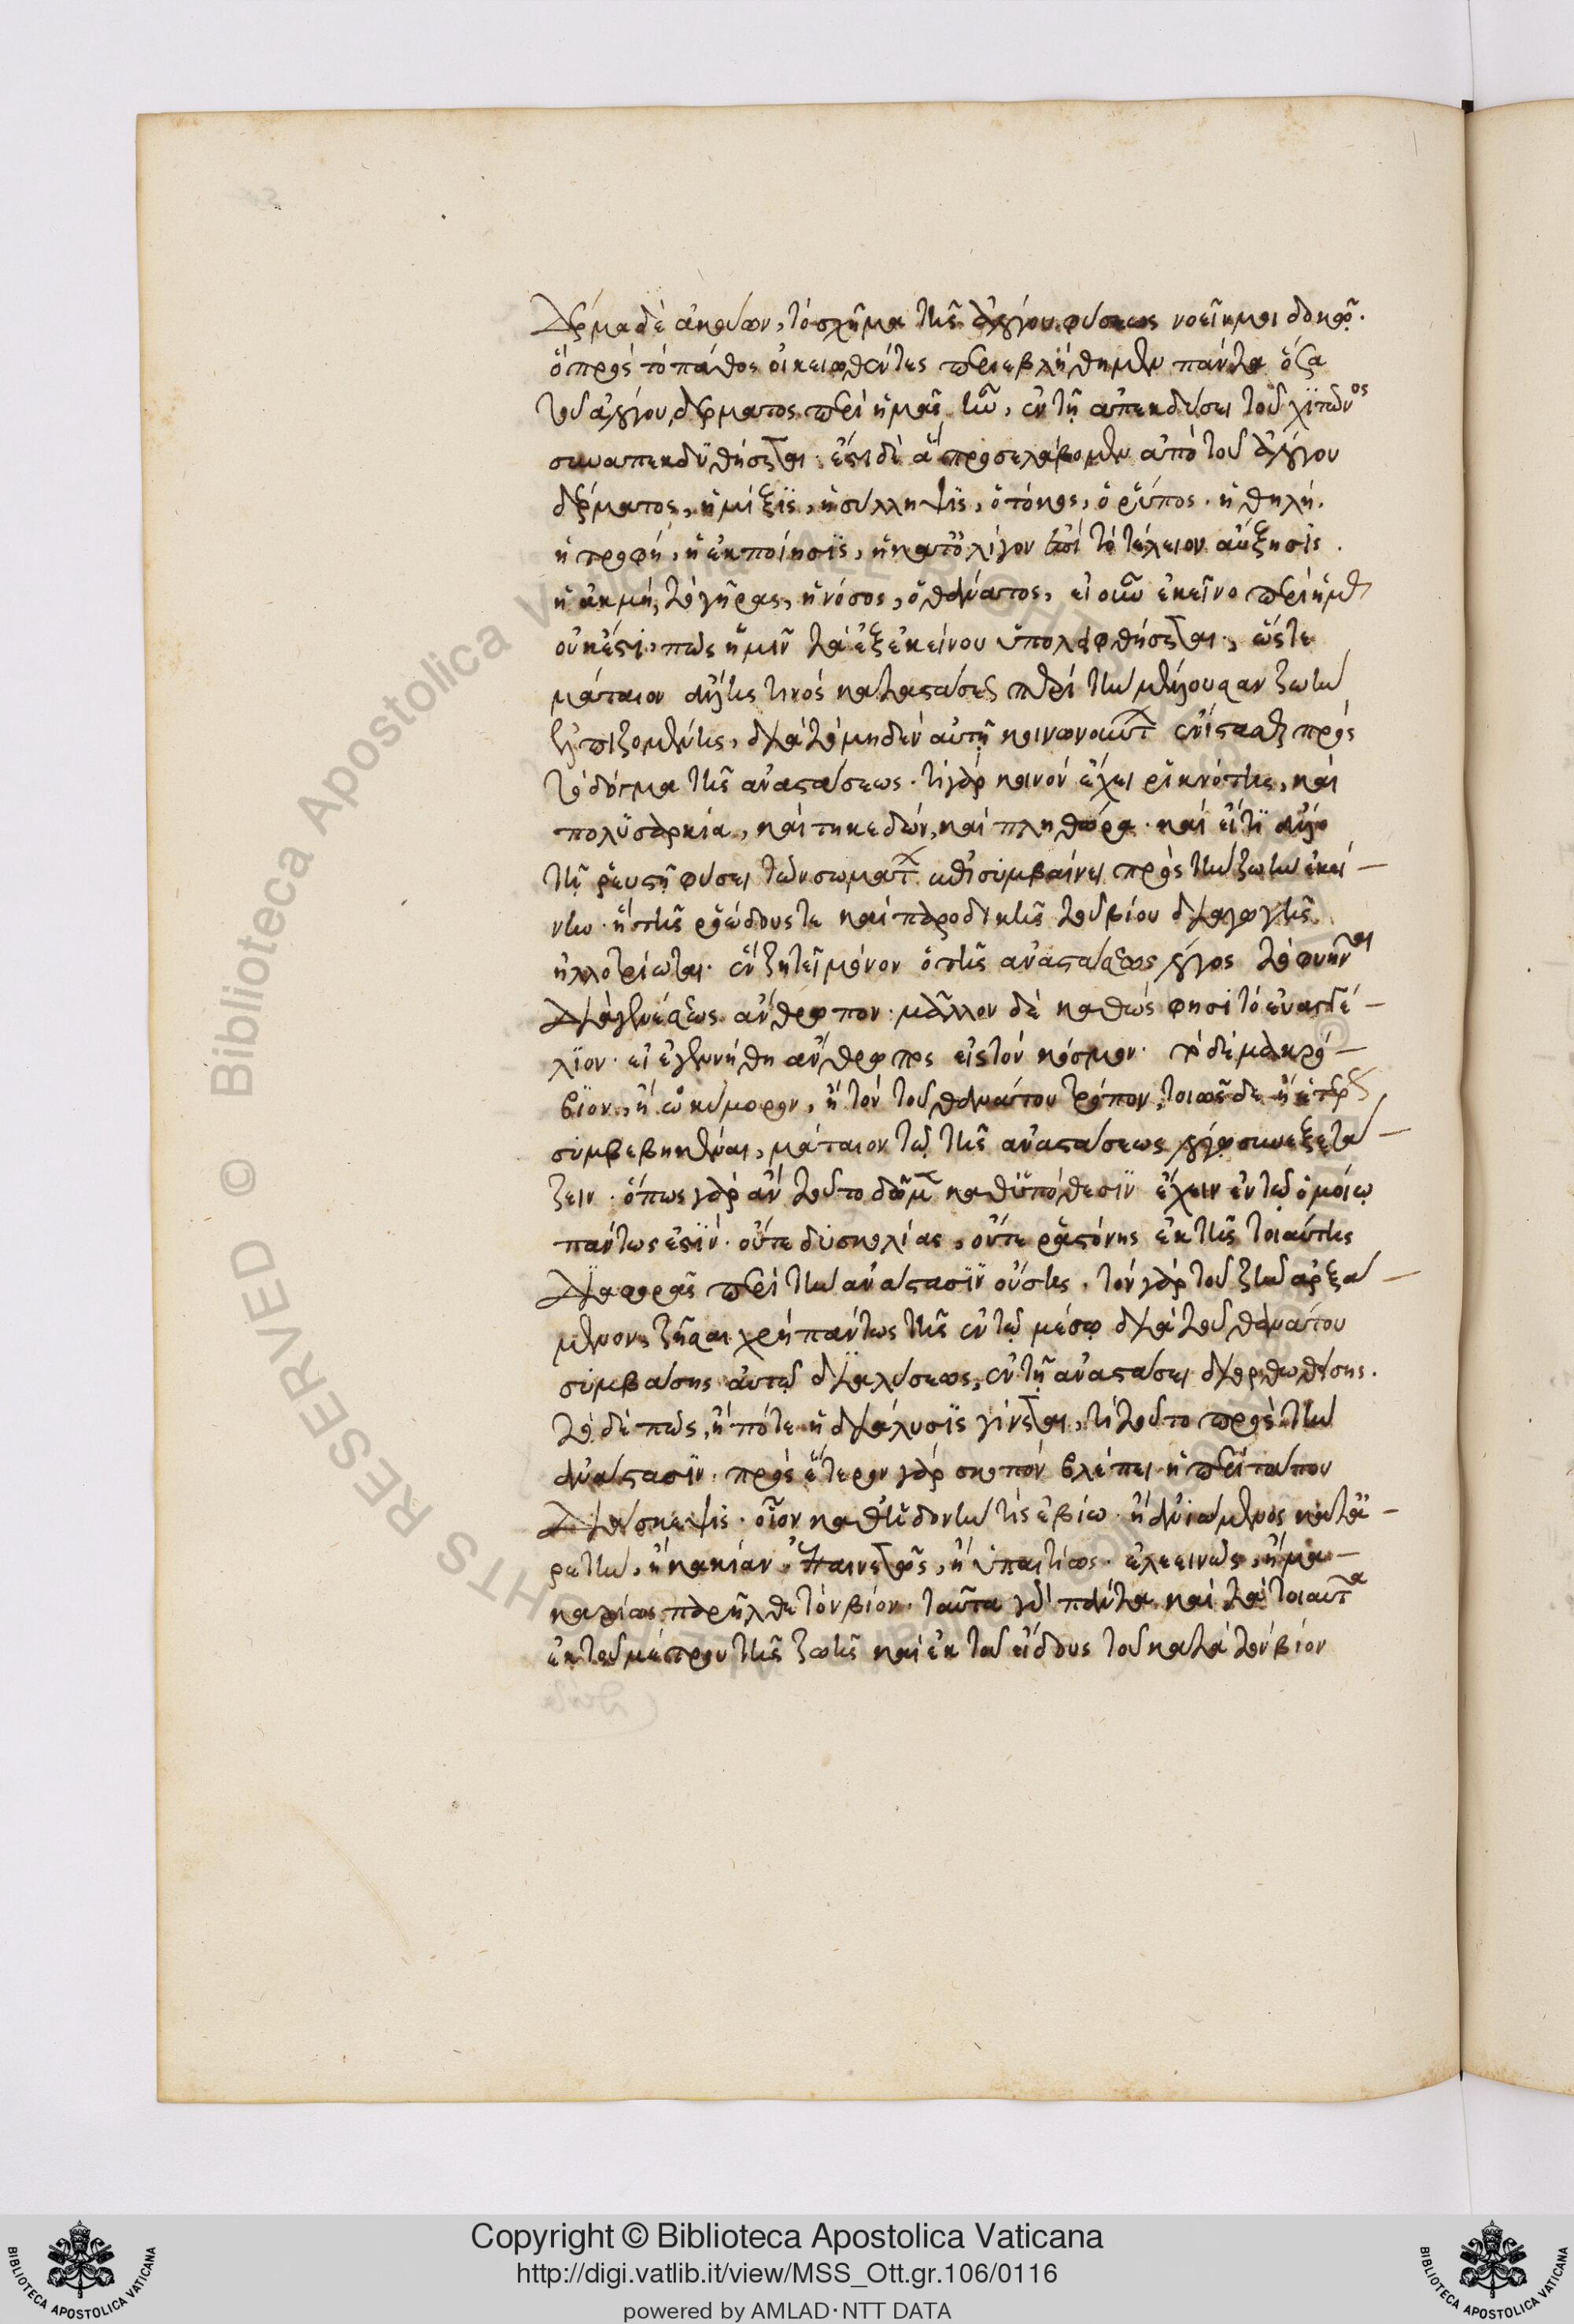 Δέρμα δὲ ἀκούων, τὸ σχῆμα τῆς ἀλόγου φύσεως νοεῖν μοι δοκῶ.
ᾧ πρὸς τὸ πάθος οἰκειωθέντες περιεβλήθημεν πάντα ὅσα
τοῦ ἀλόγου δέρματος περὶ ἡμᾶς ἦν, ἐν τῇ ἀπεκδύσει τοῦ χιτῶνος
συναπεκδυθήσεται. ἔστι δὲ ἃ προσελάβομεν ἀπὸ τοῦ ἀλόγου
δέρματος, ἡ μίξις, ἡ σύλληψις, ὁ τόκος, ὁ ῥύπος. ἡ θηλή.
ἡ τροφή, ἡ ἐκποίησις, ἡ κατ' ὀλίγον ἐπὶ τὸ τέλειον αὔξησις.
ἡ ἀκμή, τὸ γῆρας, ἡ νόσος, ὁ θάνατος, εἰ οὖν ἐκεῖνο περὶ ἡμᾶς
οὐκ ἔσται, πῶς ἡμῖν τὰ ἐξ ἐκείνου ὑπολειφθήσεται, ὥστε
μάταιον ἄλλης τινὸς καταστάσεως περὶ τὴν μέλλουσαν ζωὴν
ἐλπιζομένης, διὰ τὸ μηδὲν αὐτῇ κοινωνοῦντων ἐνίστασθαι πρὸς
τὸ δόγμα τῆς ἀναστάσεως. τί γὰρ κοινὸν ἔχει ῥικνότης, καὶ
πολυσαρκία, καὶ τηκεδών, καὶ πληθώρα. καὶ εἴ τι ἄλλο
τῇ ῥευστῇ φύσει τῶν σωμάτων συμβαίνει πρὸς τὴν ζωὴν ἐκεί-
νην. ἣ τῆς ῥοώδους τε καὶ παροδικῆς τοῦ βίου διαγωγῆς
ἠλλοτρίωται. ἓν ζητεῖ μόνον ὁ τῆς ἀναστάσεως λόγος τὸ φυῆναι
διὰ γενέσεως ἄνθρωπον. μᾶλλον δὲ καθώς φησι τὸ εὐαγγέ-
λιον. εἰ ἐγεννήθη ἄνθρωπος εἰς τὸν κόσμον. τὸ δὲ μακρό-
βιον, ἢ ὠκύμορον, ἢ τὸν τοῦ θανάτου τρόπον, τοιῶσδε ἢ ἑτέρως
συμβεβηκέναι, μάταιον τῷ τῆς ἀναστάσεως λόγῳ συνεξετά-
ζειν. ὅπως γὰρ ἂν τοῦτο δῶμεν καθ' ὑπόθεσιν ἔχειν ἐν τῷ ὁμοίῳ
πάντως ἐστίν. οὔτε δυσκολίας, οὔτε ῥᾳστώνης ἐκ τῆς τοιαύτης
διαφορᾶς περὶ τὴν ἀνάστασιν οὔσης. τὸν γὰρ τοῦ ζῆν ἀρξά-
μενον, ζῆσαι χρὴ πάντως τῆς ἐν τῷ μέσῳ διὰ τοῦ θανάτου
συμβάσης αὐτῷ διαλύσεως, ἐν τῇ ἀναστάσει διορθωθείσης.
τὸ δὲ πῶς, ἢ πότε ἡ διάλυσις γίνεται, τί τοῦτο πρὸς τὴν
ἀνάστασιν. πρὸς ἕτερον γὰρ σκοπὸν βλέπει ἡ περὶ τούτου
διάσκεψις. οἷον καθ' ἡδονήν τις ἐβίω. ἢ ἀνιώμενος κατὰ ἀ-
ρετήν, ἢ κακίαν. ἐπαινετῶς, ἢ ὑπαιτίως. ἐλεεινῶς, ἢ μα-
καρίως παρῆλθε τὸν βίον. ταῦτα γὰρ πάντα καὶ τὰ τοιαῦτα
ἐκ τοῦ μέτρου τῆς ζωῆς καὶ ἐκ τοῦ εἴδους τοῦ κατὰ τὸν βίον
Copyright © Biblioteca Apostolica Vaticana
http://digi.vatlib.it/view/MSS_Ott.gr.106/0116
powered by AMLAD·NTT DATA